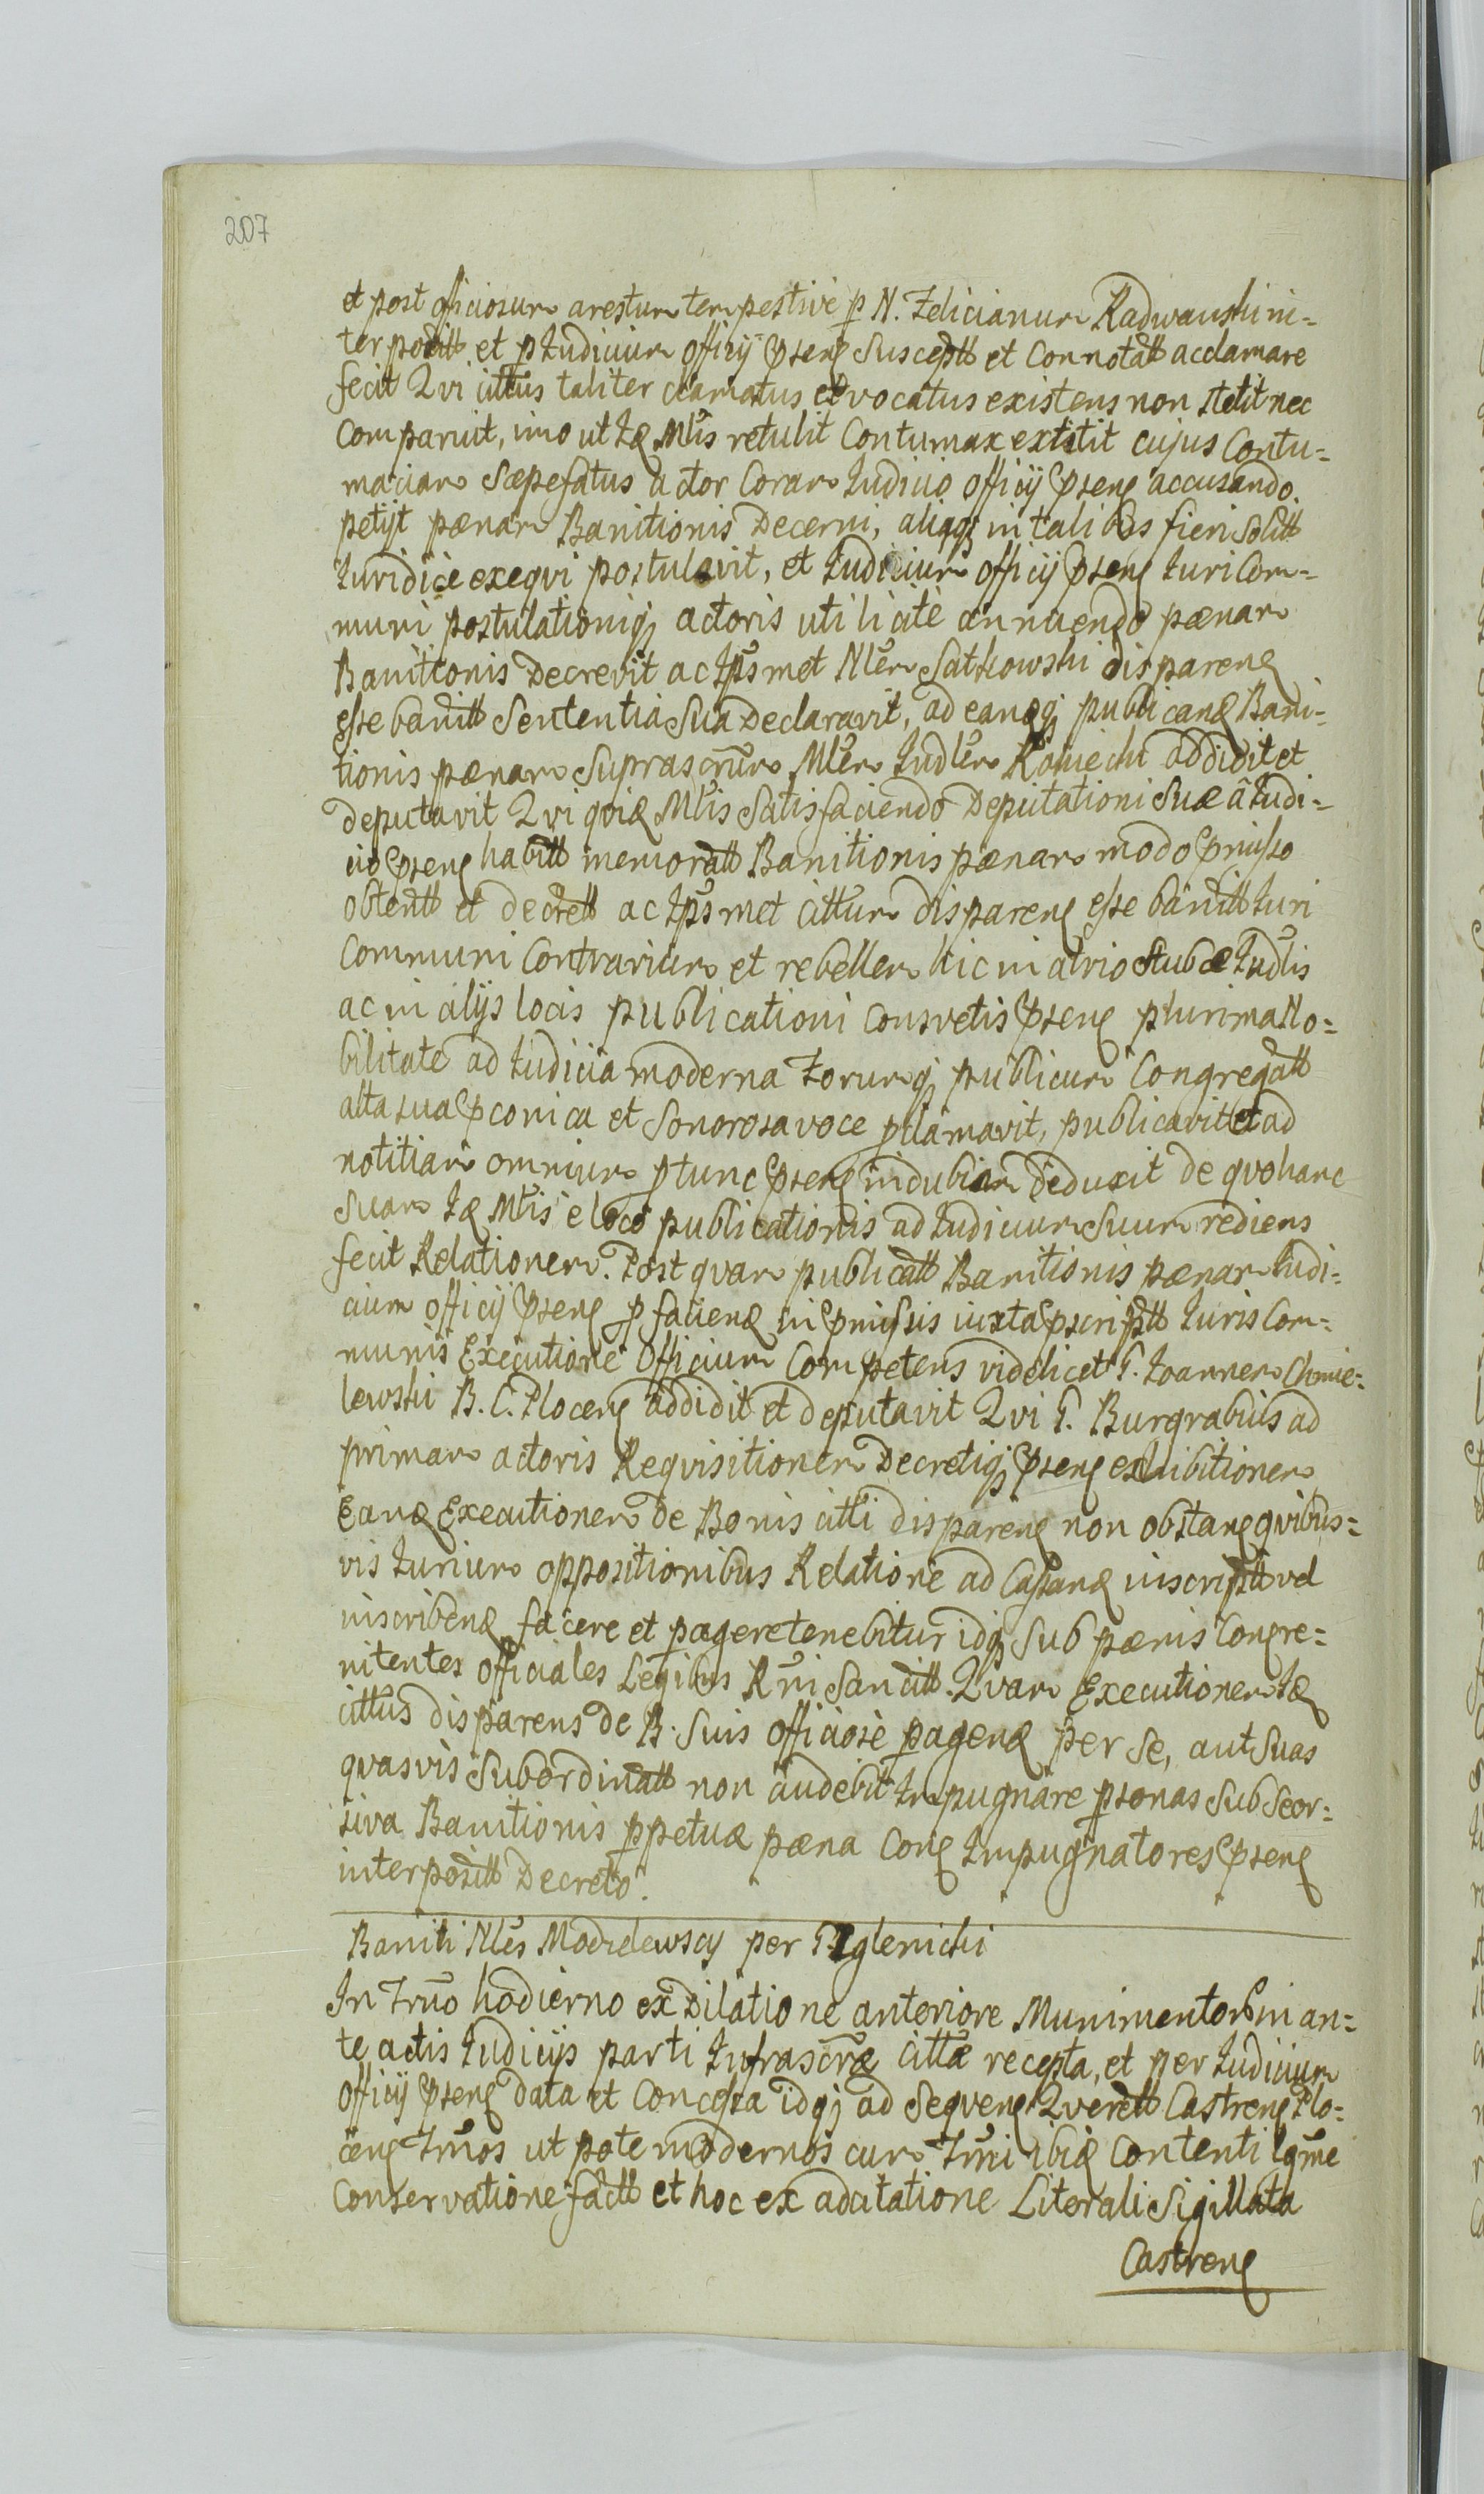 207
et post officiosum arestum tempestive p N. Felicianum Radwanski in=
terpositt et p Iudicium officij pnseng susceptt et Connotatt acclamare
fecit Qvi cittus taliter clamatus et vocatus existens non stetit nec
Comparuit, imo ut Id Mtis retulit Contumax extitit cujus Contu=
maciam sæpefatus actor Coram Iudicio officij pnseng accusando.
petijt pænam Banitionis Decerni, aliaqz in talibus fieri solitt
Iuridice exeqvi postulavit, et Iudicium officij pnseng Iuri Com=
muni postulationiqz actoris uti licitè annuendo pænam
Banitionis Decrevit ac Ipsmet Nlem Satkowski dispareng
esse banitt Sententia Sua Declaravit, ad eandqz publicand Bani=
tionis pænam suprascrum Mlem Iudlem Koniecki addidit et
deputavit Qvi qvid Mtis Satisfaciendo Deputationi Suæ â Iudi=
cio pnseng habitt memoratt Banitionis pænam modo pmisso
obtentt et decrett ac Ipsmet cittum dispareng esse banitt Iuri
Communi Contrarium et rebellem hic in atrio Stubæ Iudlis
ac in alijs locis publicationi Consvetis pnseng plurima No=
bilitate ad Iudicia moderna Forumqz publicum Congregatt
alta sua pconica et Sonorosa voce pclamavit, publicavit et ad
notitiam omnium ptunc pnseng indubiam deduxit de qvo hanc
Suam Id Mtis è loco publicationis ad Iudicium Suum rediens
fecit Relationem. Post qvam publicatt Banitionis pænam Iudi=
cium officij pnseng p faciend in pmissis iuxta pscriptt Iuris Com=
munis Executione Officium Competens videlicet G. Ioannem Chmie=
lewski B. C. Ploceng addidit et deputavit Qvi G. Burgrabius ad
primam actoris Reqvisitionem Decretiqz pnseng exhibitionem
Eand Executionem de Bonis citti dispareng non obstang qvibus=
vis Iurium oppositionibus Relatione ad Cassand inscriptt vel
inscribend facere et pagere tenebitur idqz Sub pænis Congre=
nitentes officiales Legibus Rni Sancitt. Qvam Executionem Id
cittus disparens de B. Suis officiose pagend per se, aut Suas
qvasvis Subordinatt non audebit Impugnare psonas Sub Seor=
siva Banitionis ppetuæ pæna Cong Impugnatores pnseng
interpositt Decreto.
Baniti Nles Modzelewscy per G. Zglenicki
In Trno hodierno ex Dilatione anteriore Munimentor in an=
te actis Iudicijs parti Infrascræ cittæ recepta, et per Iudicium
officij pnseng data et Concessa idqz ad Seqveng Qverett Castreng Plo=
ceng Trnos ut pote modernos cum Trni ibid Contenti lgme
Conservatione factt et hoc ex adcitatione Literali Sigillata
Castreng